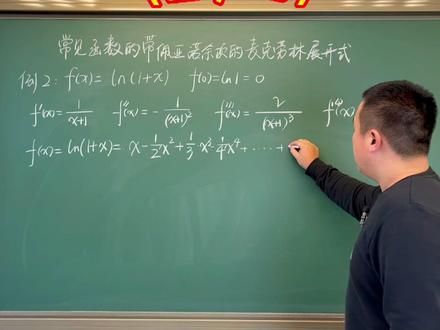 常见函数的带佩亚诺余项的麦克劳林展开式
例2: f(x) = ln(1+x) f(0)=ln1=0
f'(x)=1/(x+1) f''(x)=-1/(x+1)² f'''(x)=2/(x+1)³ f⁽⁴⁾(x)
f(x)=ln(1+x)= x-1/2x²+1/3·x³-1/4x⁴+·····+